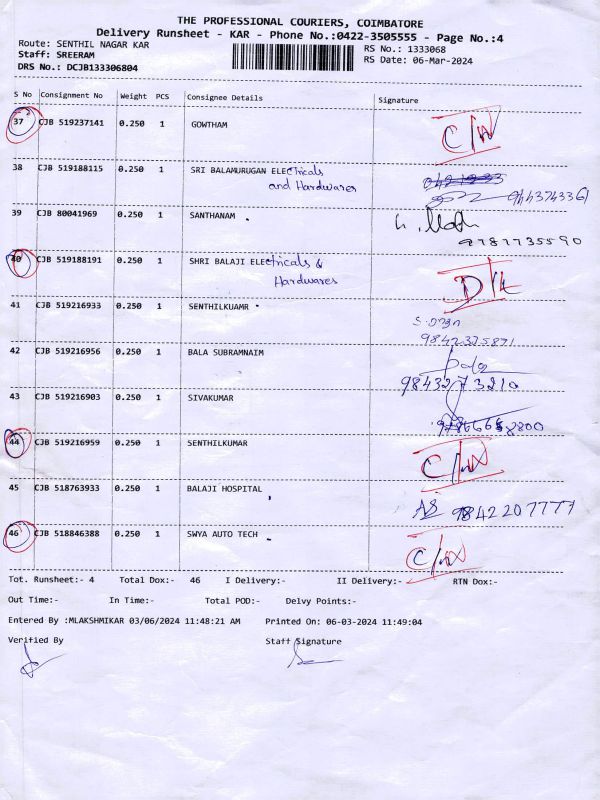 THE PROFESSIONAL COURIERS, COIMBATORE
Delivery Runsheet - KAR - Phone No.:0422-3505555 - Page No.:4
Route: SENTHIL NAGAR KAR RS No.: 1333068
Staff: SREERAM RS Date: 06-Mar-2024
DRS No.: DCJB133306804
S No Consignment No Weight PCS Consignee Details Signature
37 CJB 519237141 0.250 1 GOWTHAM C/N
38 CJB 519188115 0.250 1 SRI BALAMURUGAN ELEctricals
and Hardwares 9443743361
39 CJB 80041969 0.250 1 SANTHANAM
9787735590
40 CJB 519188191 0.250 1 SHRI BALAJI ELEctricals &
Hardwares D/L
41 CJB 519216933 0.250 1 SENTHILKUAMR
9842325871
42 CJB 519216956 0.250 1 BALA SUBRAMNAIM
9843273210
43 CJB 519216903 0.250 1 SIVAKUMAR
44 CJB 519216959 0.250 1 SENTHILKUMAR C/N
45 CJB 518763933 0.250 1 BALAJI HOSPITAL AS 9842207777
46 CJB 518846388 0.250 1 SWYA AUTO TECH C/N
Tot. Runsheet:- 4 Total Dox:- 46 I Delivery:- II Delivery:- RTN Dox:-
Out Time:- In Time:- Total POD:- Delvy Points:-
Entered By :MLAKSHMIKAR 03/06/2024 11:48:21 AM Printed On: 06-03-2024 11:49:04
Verified By Staff Signature